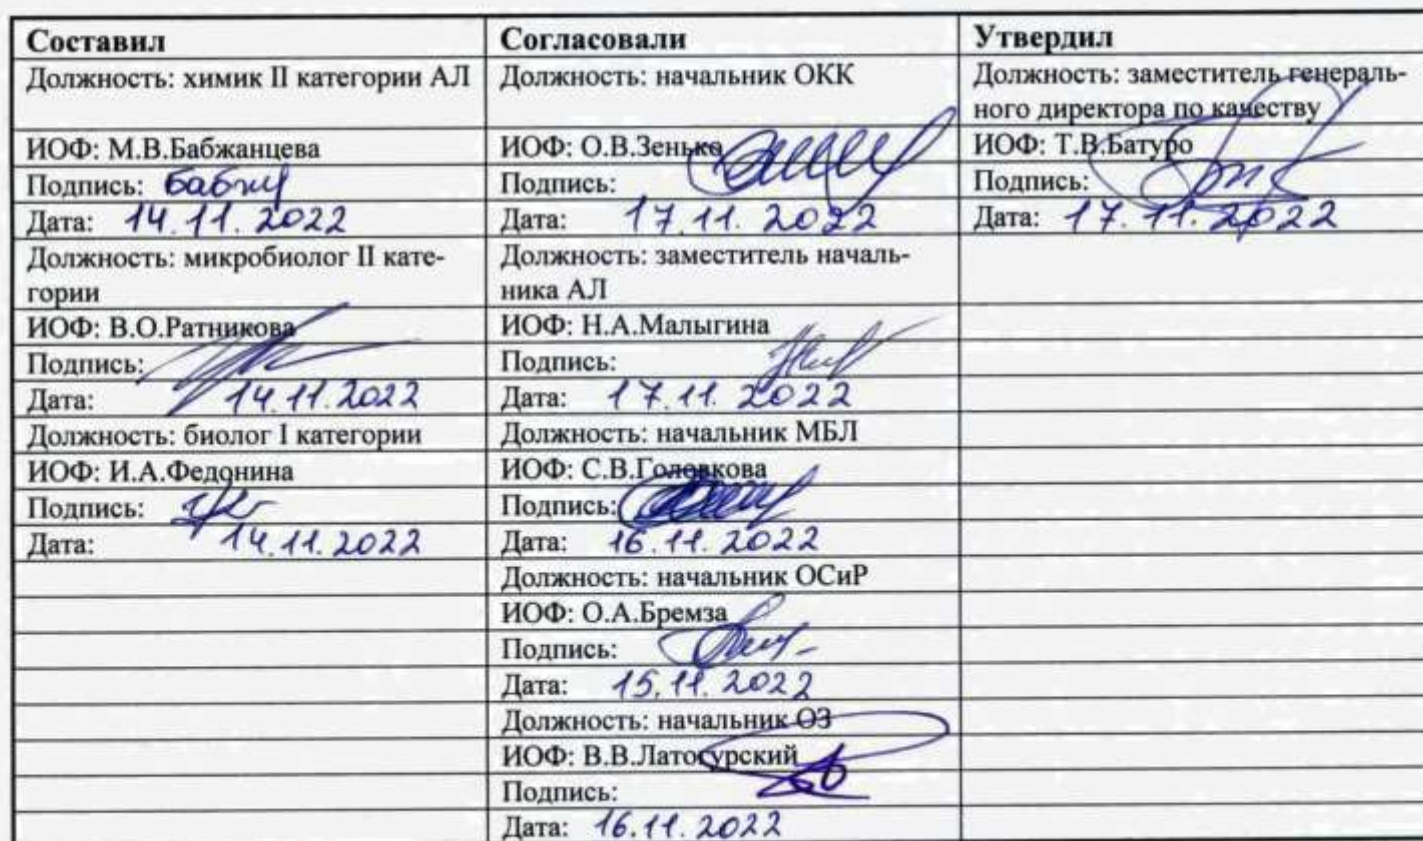 Составил Согласовали Утвердил
Должность: химик II категории АЛ Должность: начальник ОКК Должность: заместитель генераль-
ного директора по качеству
ИОФ: М.В.Бабжанцева ИОФ: О.В.Зенько ИОФ: Т.В.Батуро
Подпись: Подпись: Подпись:
Дата: 14.11.2022 Дата: 17.11.2022 Дата: 17.11.2022
Должность: микробиолог II кате- Должность: заместитель началь-
гории ника АЛ
ИОФ: В.О.Ратникова ИОФ: Н.А.Малыгина
Подпись: Подпись:
Дата: 14.11.2022 Дата: 17.11.2022
Должность: биолог I категории Должность: начальник МБЛ
ИОФ: И.А.Федонина ИОФ: С.В.Головкова
Подпись: Подпись:
Дата: 14.11.2022 Дата: 16.11.2022
Должность: начальник ОСиР
ИОФ: О.А.Бремза
Подпись:
Дата: 15.11.2022
Должность: начальник ОЗ
ИОФ: В.В.Латогурский
Подпись:
Дата: 16.11.2022